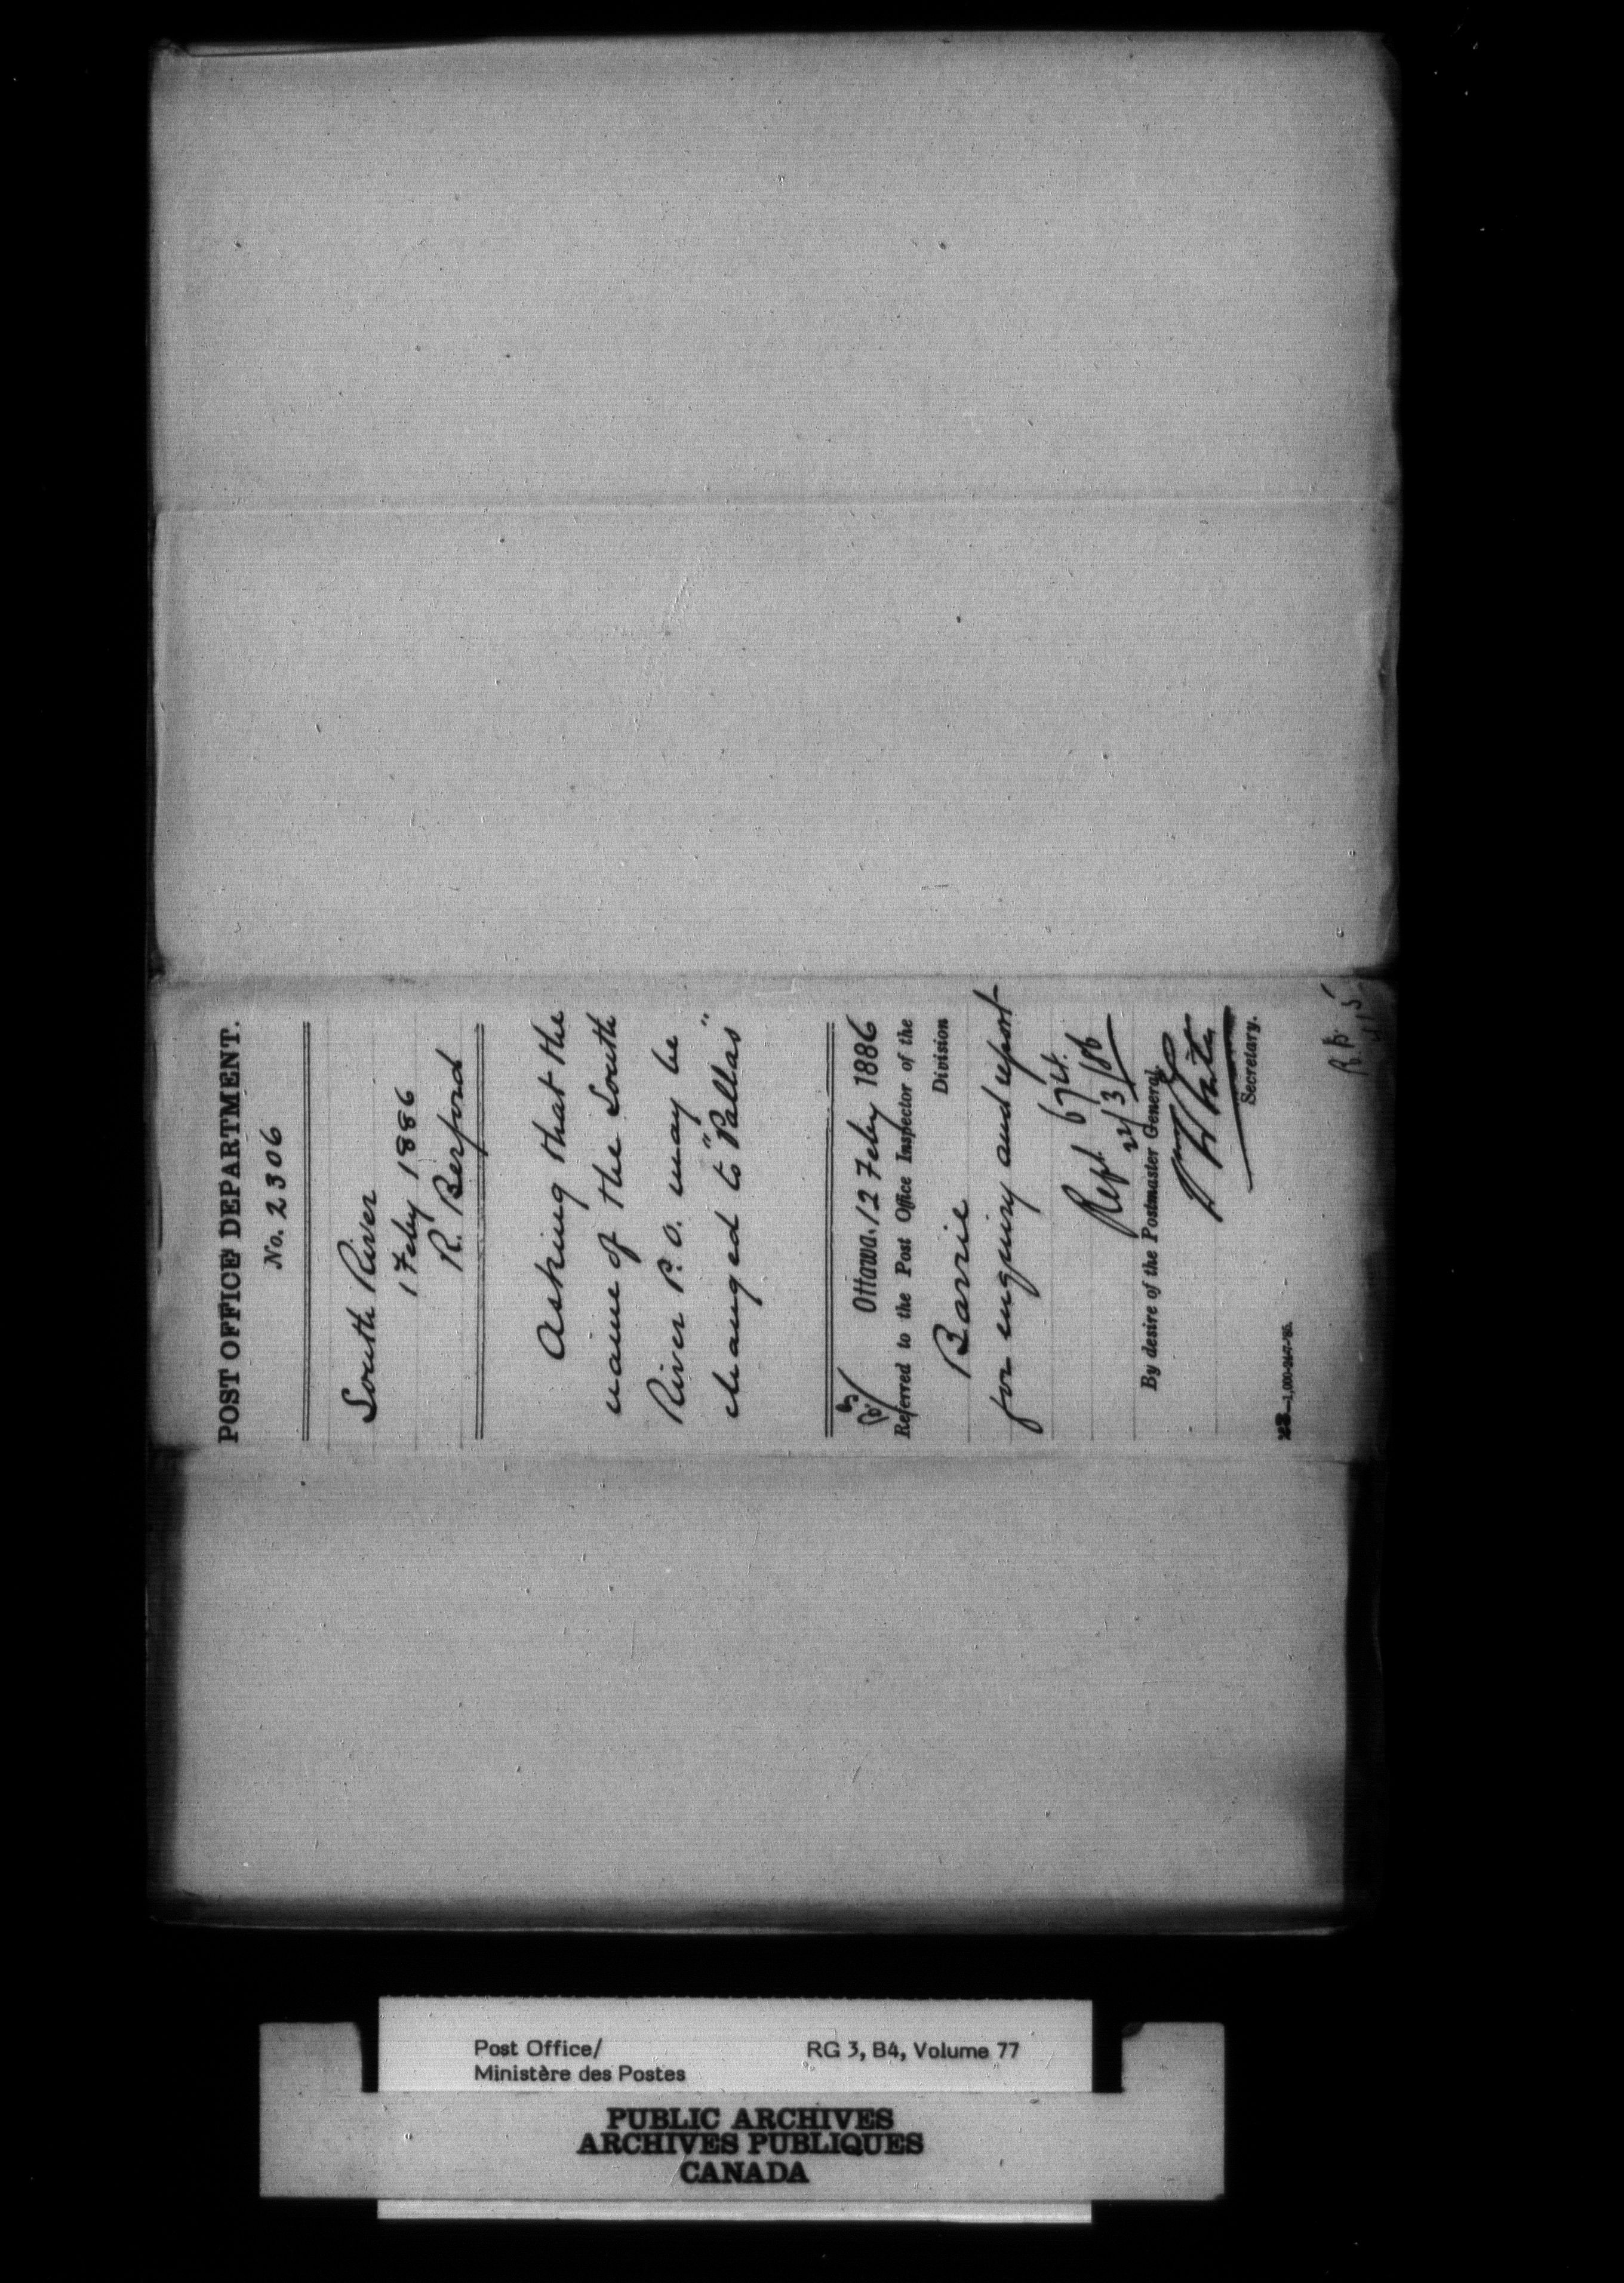 POST OFFICE DEPARTMENT.
No. 2306
South River
1 Feby 1886
R. Berford
Asking that the
name of the South
River P. O. may be
changed to "Pallas"
Ottawa, 12 Feby 1886
Referred to the Post Office Inspector of the
Barrie Division
for enquiry and report
Rept 674
22/3/86
By desire of the Postmaster General,
Wm White
Secretary.
28.—1,000-24-7-'85.
Post Office/ RG 3, B4, Volume 77
Ministère des Postes
PUBLIC ARCHIVES
ARCHIVES PUBLIQUES
CANADA